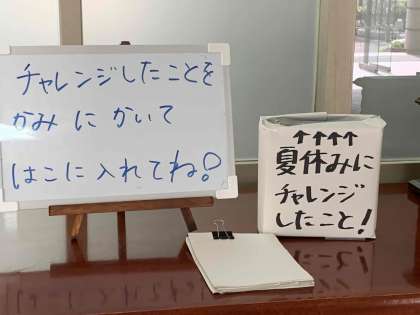 チャレンジしたことを
かみにかいて
はこに入れてね!
↑↑↑↑
夏休みに
チャレンジ
したこと!